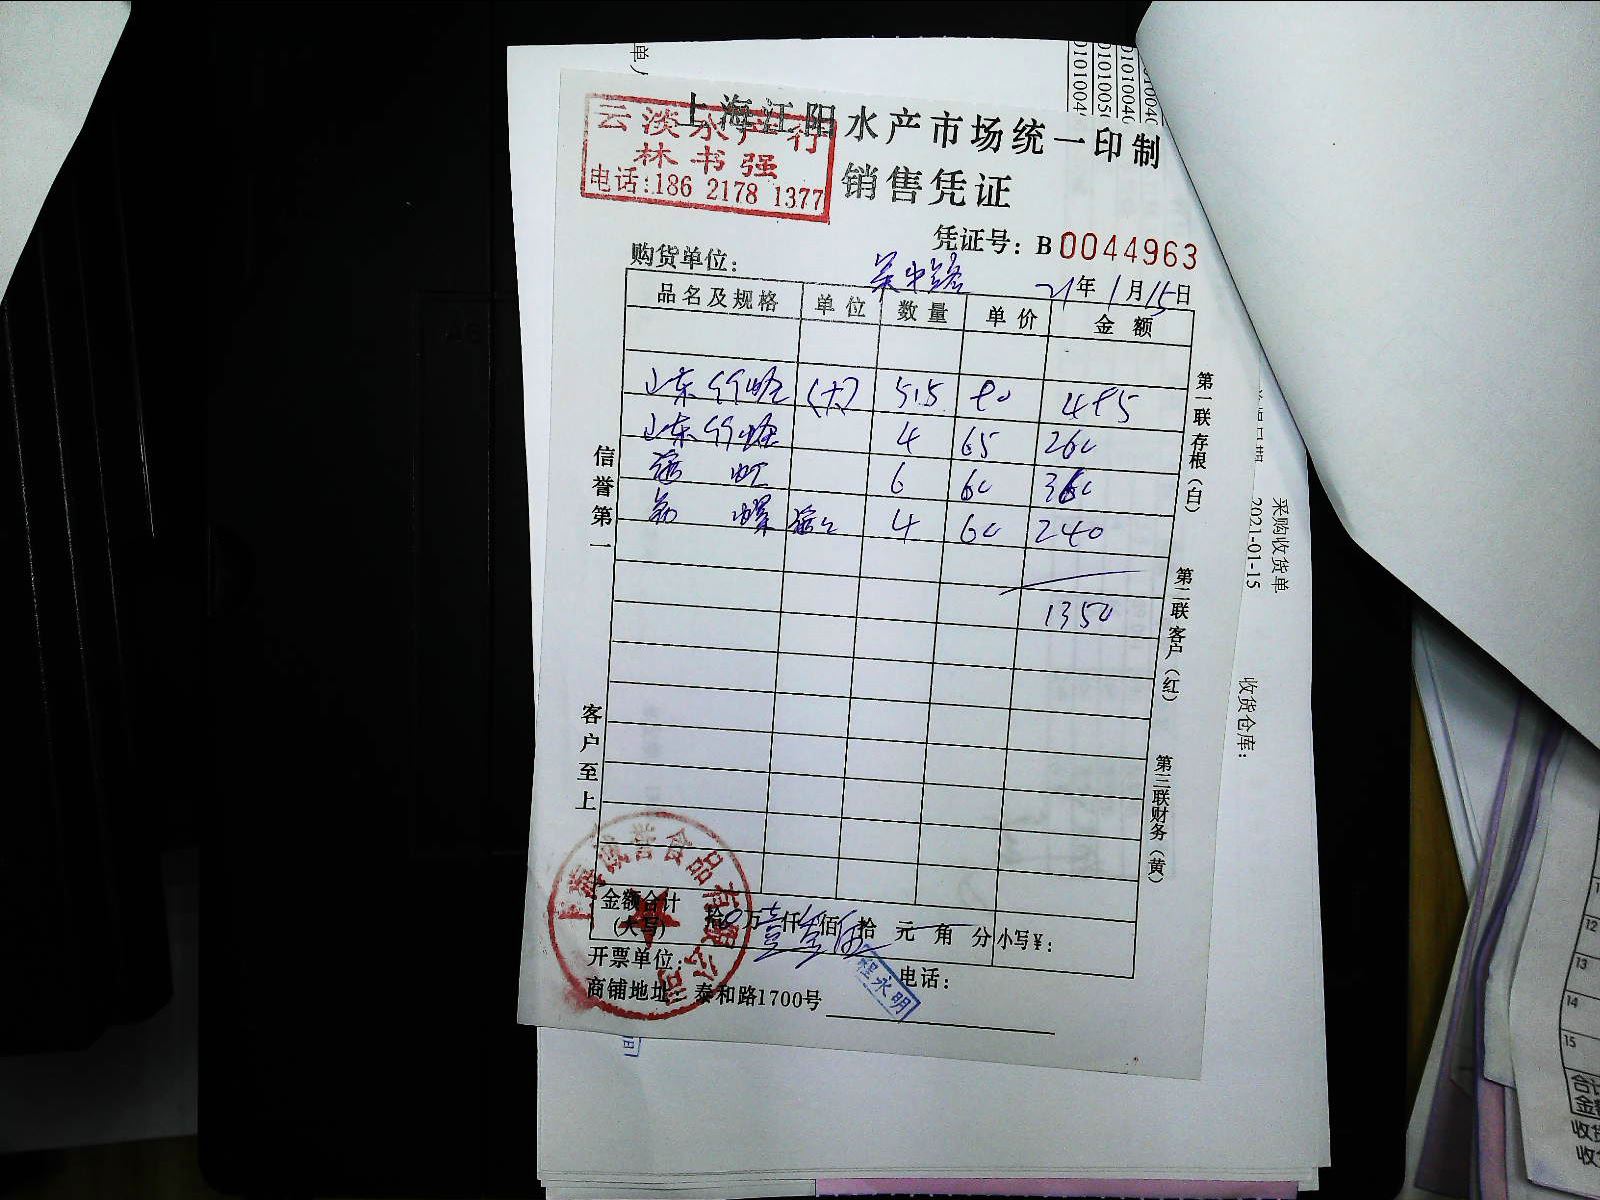 上海江阳水产市场统一印制
云淡水产行
林书强
电话:186 2178 1377
销售凭证
凭证号: B0044963
购货单位: 吴中路
21年1月15日
品名及规格 单位 数量 单价 金额
山东竹蛏 (大) 80
山东竹蛏 4 65 260
6 60 360
螺 4 60 240
1350
信誉第一
客户至上
第一联存根(白)
第二联客户(红)
第三联财务(黄)
金额合计
(大写) 拾 万壹仟叁佰 拾 元 角 分 小写¥:
开票单位: 电话:
商铺地址: 泰和路1700号
程永明
食品有限公司
采购收货单
2021-01-15
收货仓库:
12
13
14
15